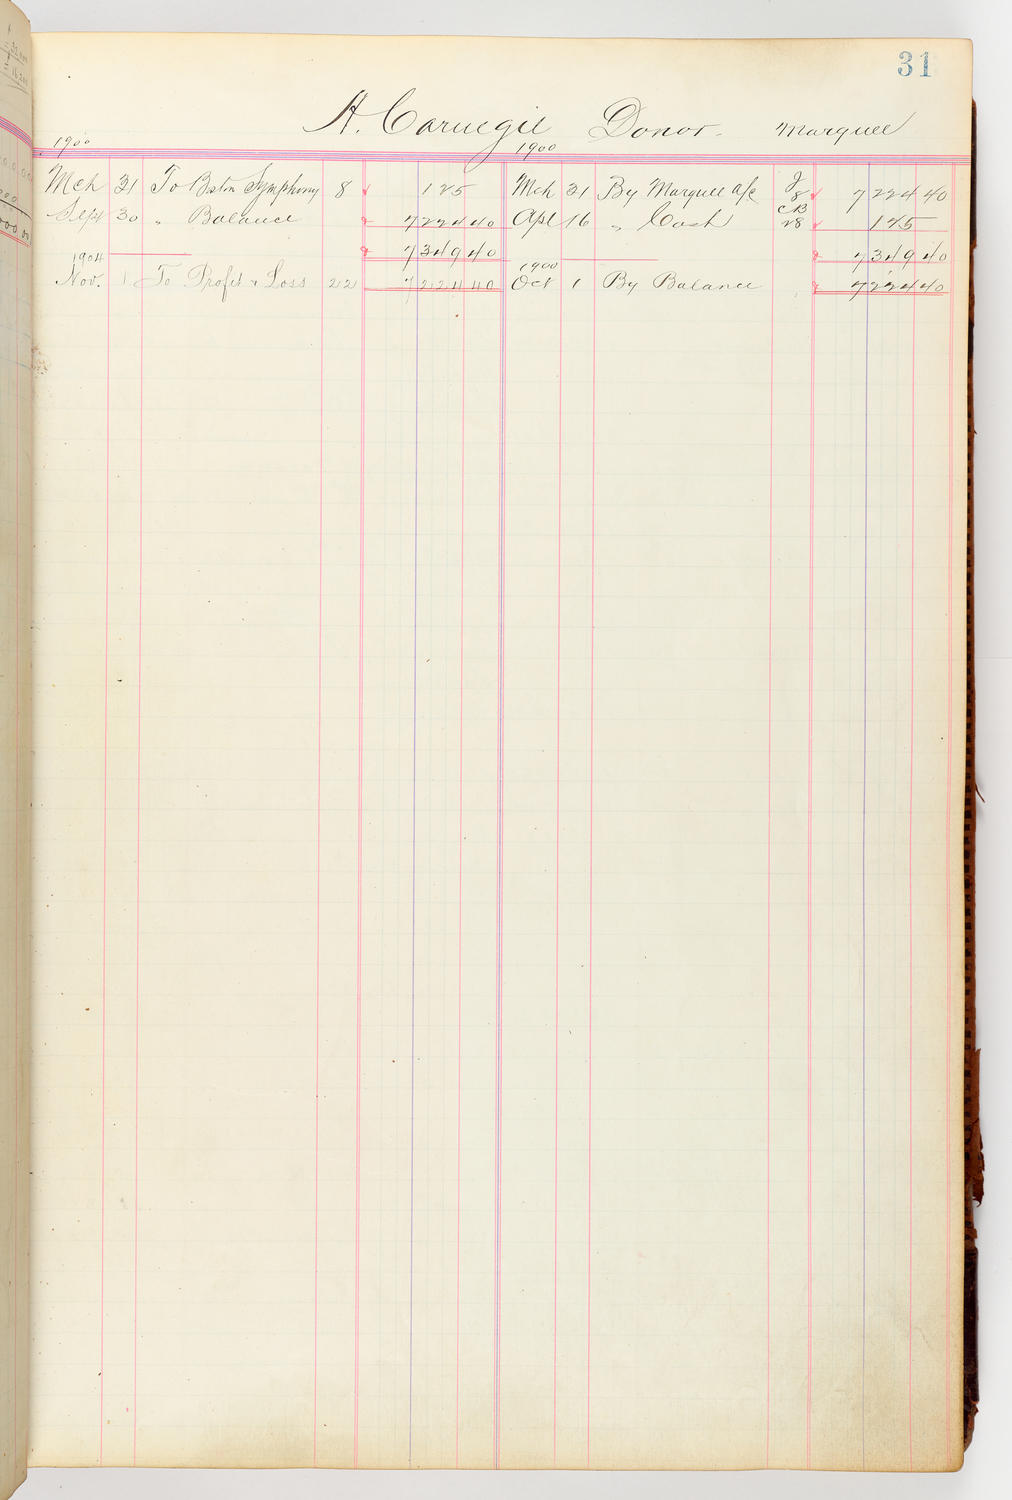 31
A. Carnegie Donor. Marquee
1900 1900
Mch 31 To Boston Symphony 8 125 Mch 31 By Marquee a/c J 8 7224 40
Sept 30 " Balance 7224 40 Apl 16 " Cash CB 28 125
7349 40 7349 40
1904 1900
Nov. 1 To Profit & Loss 22 7224 40 Oct 1 By Balance 7224 40